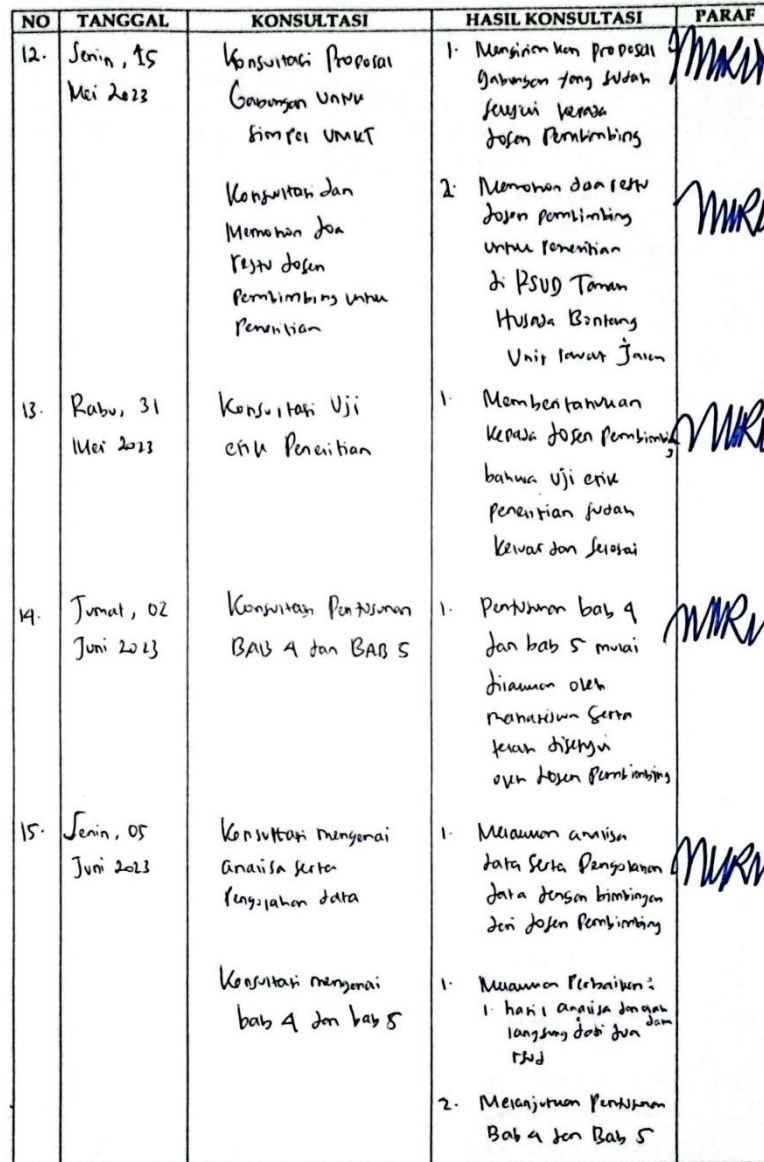 NO TANGGAL KONSULTASI HASIL KONSULTASI PARAF
12. Senin, 15
Mei 2023
Konsultasi Proposal
Gabungan untuk
simpel UMKT
1. Mengirimkan proposal
gabungan yang sudah
kepada
dosen Pembimbing
Konsultasi dan
Memohon doa
restu dosen
Pembimbing untuk
Penelitian
2. Memohon doa restu
dosen pembimbing
untuk Penelitian
di RSUD Taman
Husada Bontang
Unit rawat Jalan
13. Rabu, 31
Mei 2023
Konsultasi Uji
etik Penelitian
1. Memberitahukan
kepada dosen Pembimbing
bahwa Uji etik
penelitian sudah
keluar dan selesai
14. Jumat, 02
Juni 2023
Konsultasi Penyusunan
BAB 4 dan BAB 5
1. Penyusunan bab 4
dan bab 5 mulai
dilakukan oleh
mahasiswa serta
telah disetujui
oleh dosen Pembimbing
15. Senin, 05
Juni 2023
Konsultasi mengenai
analisa serta
Pengolahan data
1. Melakukan analisa
data serta Pengolahan
data dengan bimbingan
dari dosen Pembimbing
Konsultasi mengenai
bab 4 dan bab 5
1. Melakukan Perbaikan:
1. hasil analisa jangan
langsung
2. Melanjutkan Penyusunan
Bab 4 dan Bab 5